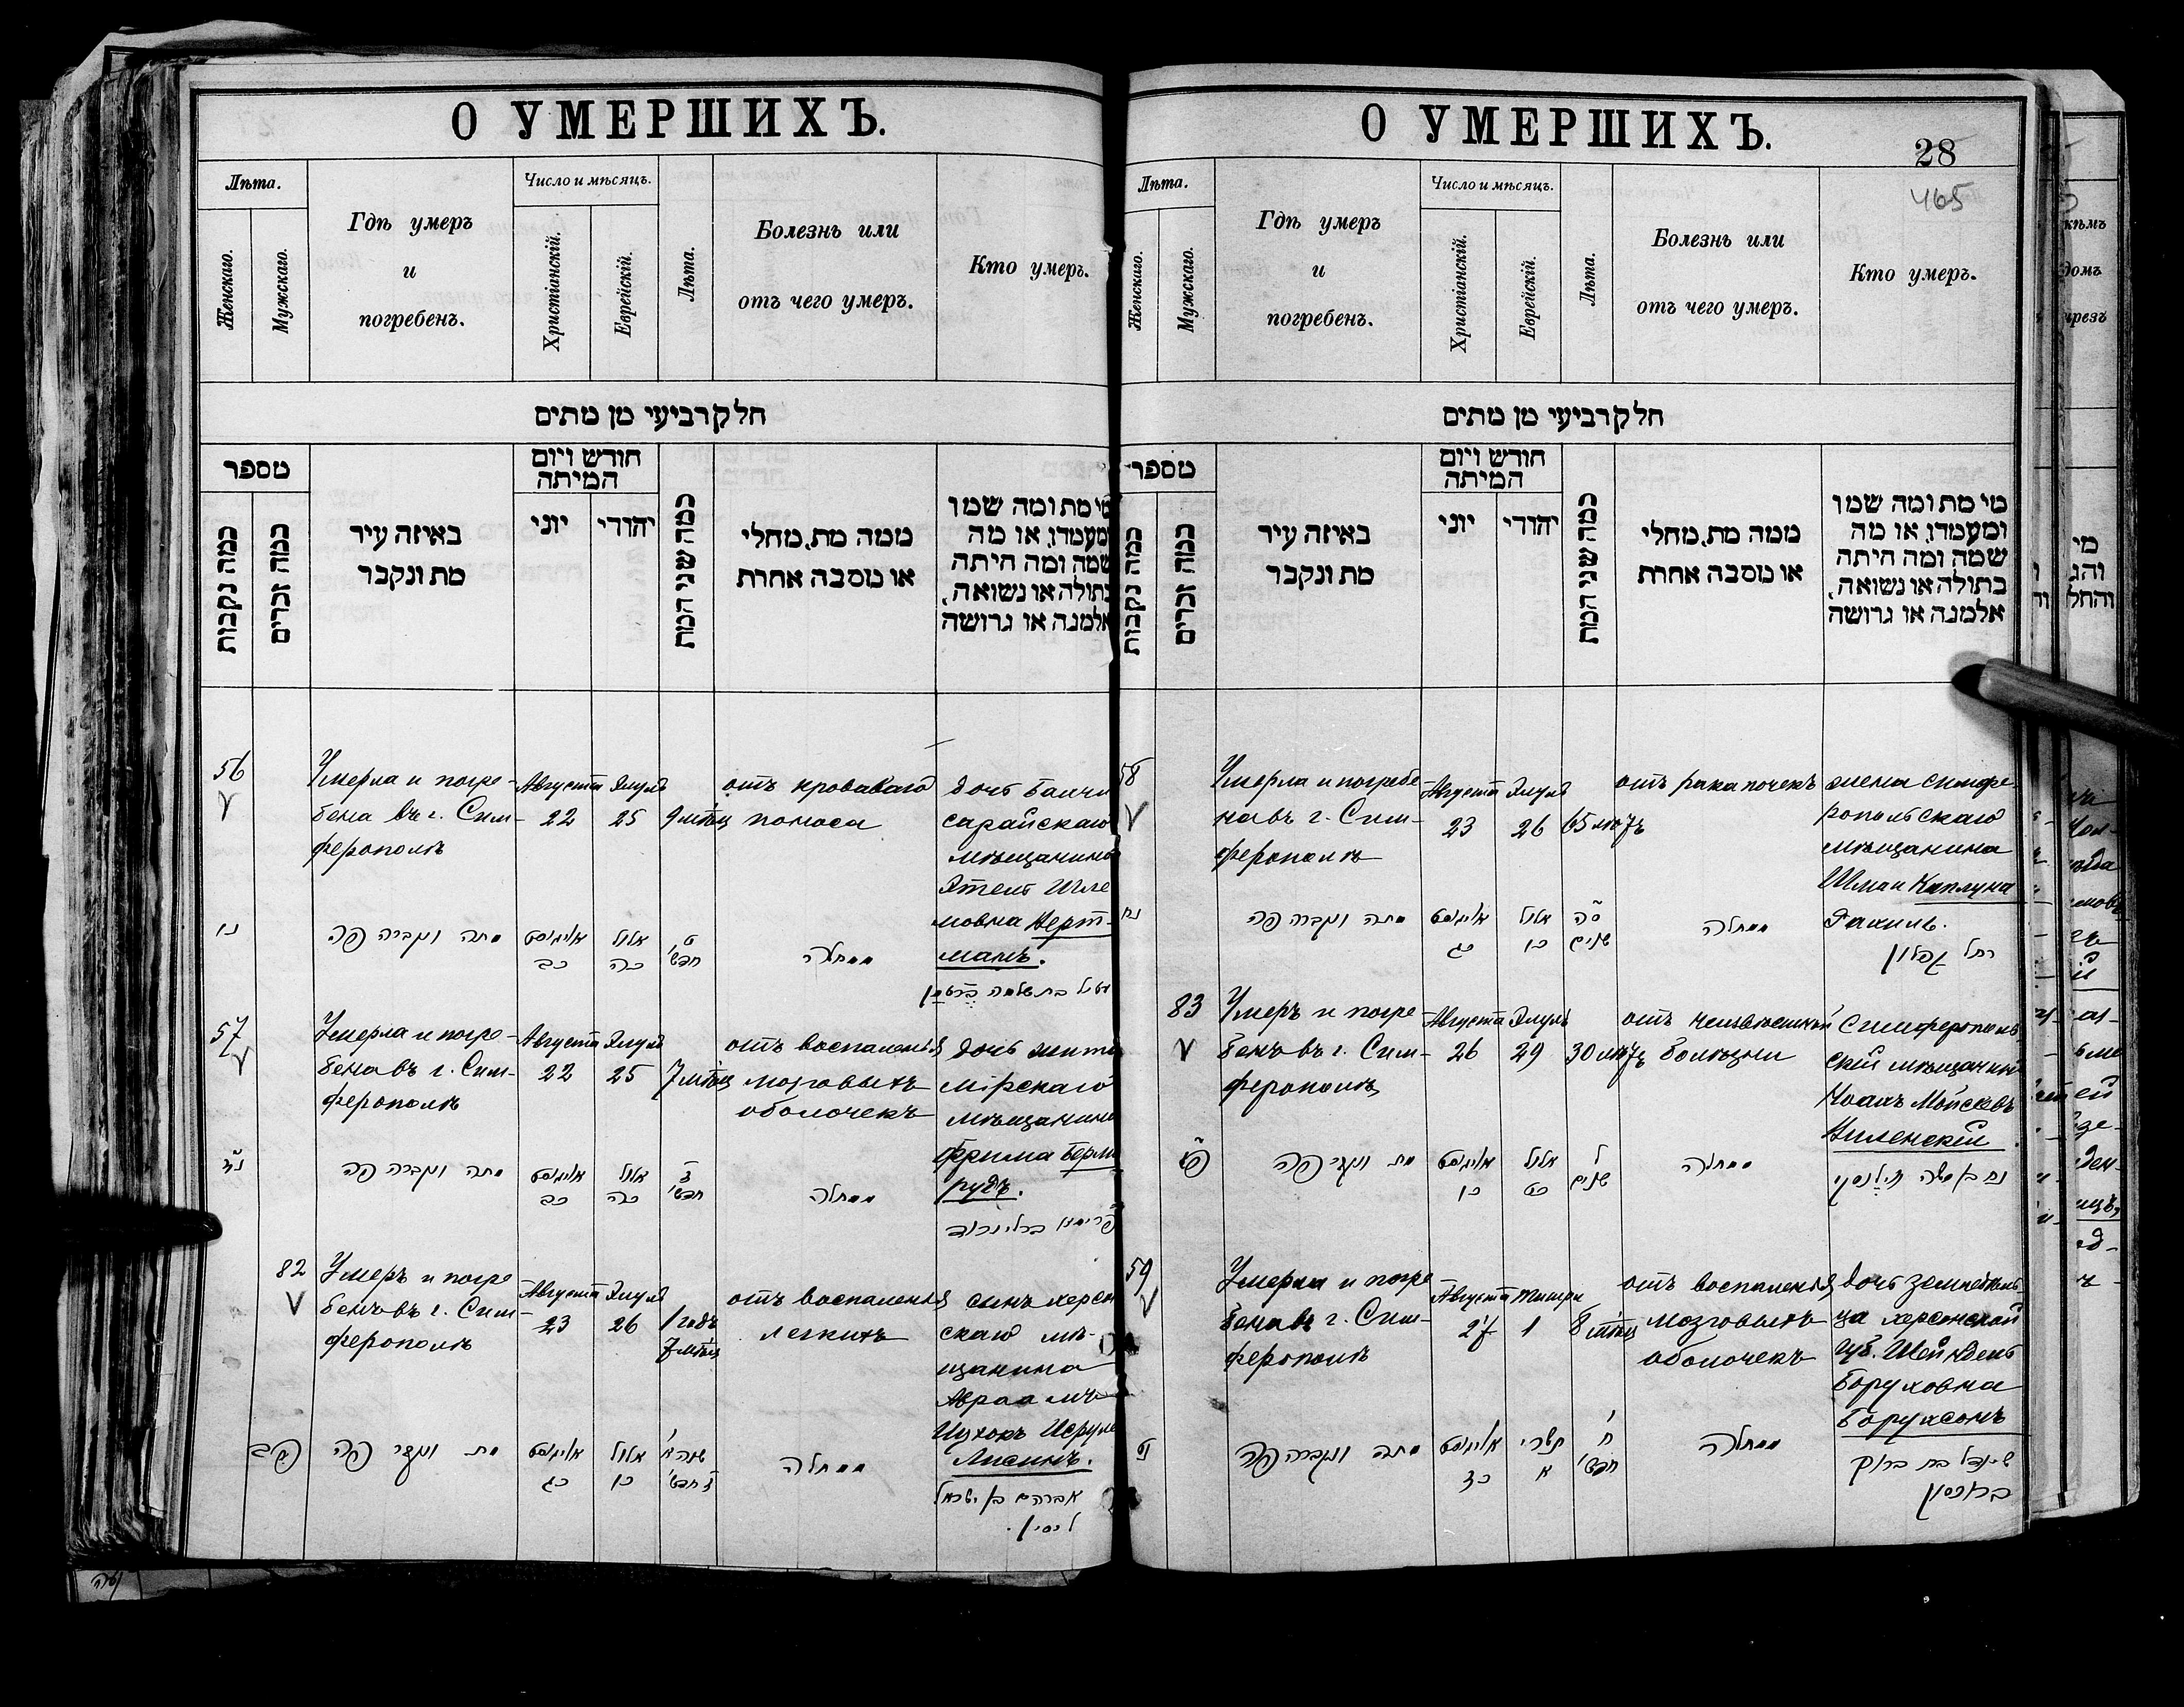 О УМЕРШИХЪ.
Лѣта.
Женскаго.
Мужскаго.
Гдѣ умеръ
и
погребенъ.
Число и мѣсяцъ.
Христіанскій.
Еврейскій.
Лѣта.
Болезнь или
отъ чего умеръ.
Кто умеръ.
חלק רביעי מן מתים
מספר
כמה נקבות
כמה זכרים
באיזה עיר
מת ונקבר
חודש ויום
המיתה
יוני
יהודי
כמה שני המת
ממה מת, מחלי
או מסבה אחרת
מי מת ומה שמו
ומעמדו, או מה
שמה ומה היתה
בתולה או נשואה,
אלמנה או גרושה
56
Умерла и погре-
бена въ г. Сим-
ферополѣ
Августа
22
Элулъ
25
9 мѣсц
отъ кроваваго
поноса
дочь Бахчи
сарайскаго
мѣщанина
Этель Шле
мовна
манъ.
נו
מתה ונקברה פה
אויגוסט
כב
אלול
כה
ט
חדשי
מחלה
בת שלמה
57
Умерла и погре-
бена въ г. Сим-
ферополѣ
Августа
22
Элулъ
25
7 мѣсц
отъ воспаленія
мозговыхъ
оболочекъ
дочь жито
мірскаго
мѣщанина
Фрима
рудъ.
נז
מתה ונקברה פה
אויגוסט
כב
אלול
כה
ז
חדשי
מחלה
82
Умеръ и погре
бенъ въ г. Сим-
ферополѣ
Августа
23
Элулъ
26
1 годъ
7 мѣсц
отъ воспаленія
легкихъ
сынъ херсон
скаго мѣ-
щанина
Авраамъ
Ицхокъ Исруле
Лисинъ.
פב
מת ונקבר פה
אויגוסט
כג
אלול
כו
שנה א
ז חדשי
מחלה
אברהם בן ישראל
ליסין.
О УМЕРШИХЪ.
28
465
Лѣта.
Женскаго.
Мужскаго.
Гдѣ умеръ
и
погребенъ.
Число и мѣсяцъ.
Христіанскій.
Еврейскій.
Лѣта.
Болезнь или
отъ чего умеръ.
Кто умеръ.
חלק רביעי מן מתים
מספר
כמה נקבות
כמה זכרים
באיזה עיר
מת ונקבר
חודש ויום
המיתה
יוני
יהודי
כמה שני המת
ממה מת, מחלי
או מסבה אחרת
מי מת ומה שמו
ומעמדו, או מה
שמה ומה היתה
בתולה או נשואה,
אלמנה או גרושה
58
Умерла и погребе-
на въ г. Сим-
ферополѣ
Августа
23
Элулъ
26
65 лѣтъ
отъ рака почекъ
жена симфе-
ропольскаго
мѣщанина
Шман Каплуна
Рахиль.
נח
מתה ונקברה פה
אויגוסט
כג
אלול
כו
סה
שנים
מחלה
רחל קפלון
83
Умеръ и погре-
бенъ въ г. Сим-
ферополѣ
Августа
26
Элулъ
29
30 лѣтъ
отъ неизвѣстной
болѣзни
Симферополь
скій мѣщанинъ
Ноахъ Мойсеевъ
Виленскій
פג
מת ונקבר פה
אויגוסט
כו
אלול
כט
ל
שנים
מחלה
נח בן משה ווילנסקי
59
Умерла и погре
бена въ г. Сим-
ферополѣ
Августа
27
Тишри
1
8 мѣсц
отъ воспаленія
мозговыхъ
оболочекъ
дочь земледѣль
ца херсонской
губ. Шейндель
Боруховна
Борухсонъ
נט
מתה ונקברה פה
אויגוסט
כז
תשרי
א
ח
חדשי
מחלה
שיינדל בת ברוך
ברוכסון